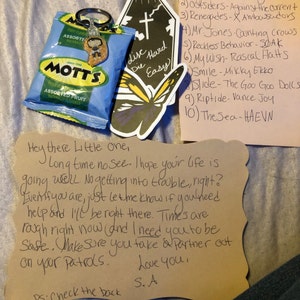 2) Outsiders - Against the current
3) Renegades - X Ambassadors
4) Mr Jones - Counting Crows
5) Reckless Behavior -
6) My Wish - Rascal Flatts
7) Smile - Mikky Ekko
8) Slide - The Goo Goo Dolls
9) Riptide - Vance Joy
10) The Sea - HAEVN
MOTT'S
ASSORTED FRUIT
Hard
Die
Easy
Hey there Little One,
Long time no see. I hope your life is
going well. No getting into trouble, right?
Even if you are, just let me know if you need
help and I'll be right there. Times are
rough right now and I need you to be
Safe. Make sure you take a Partner out
on your Patrols.
Love you,
S. A
PS: Check the back